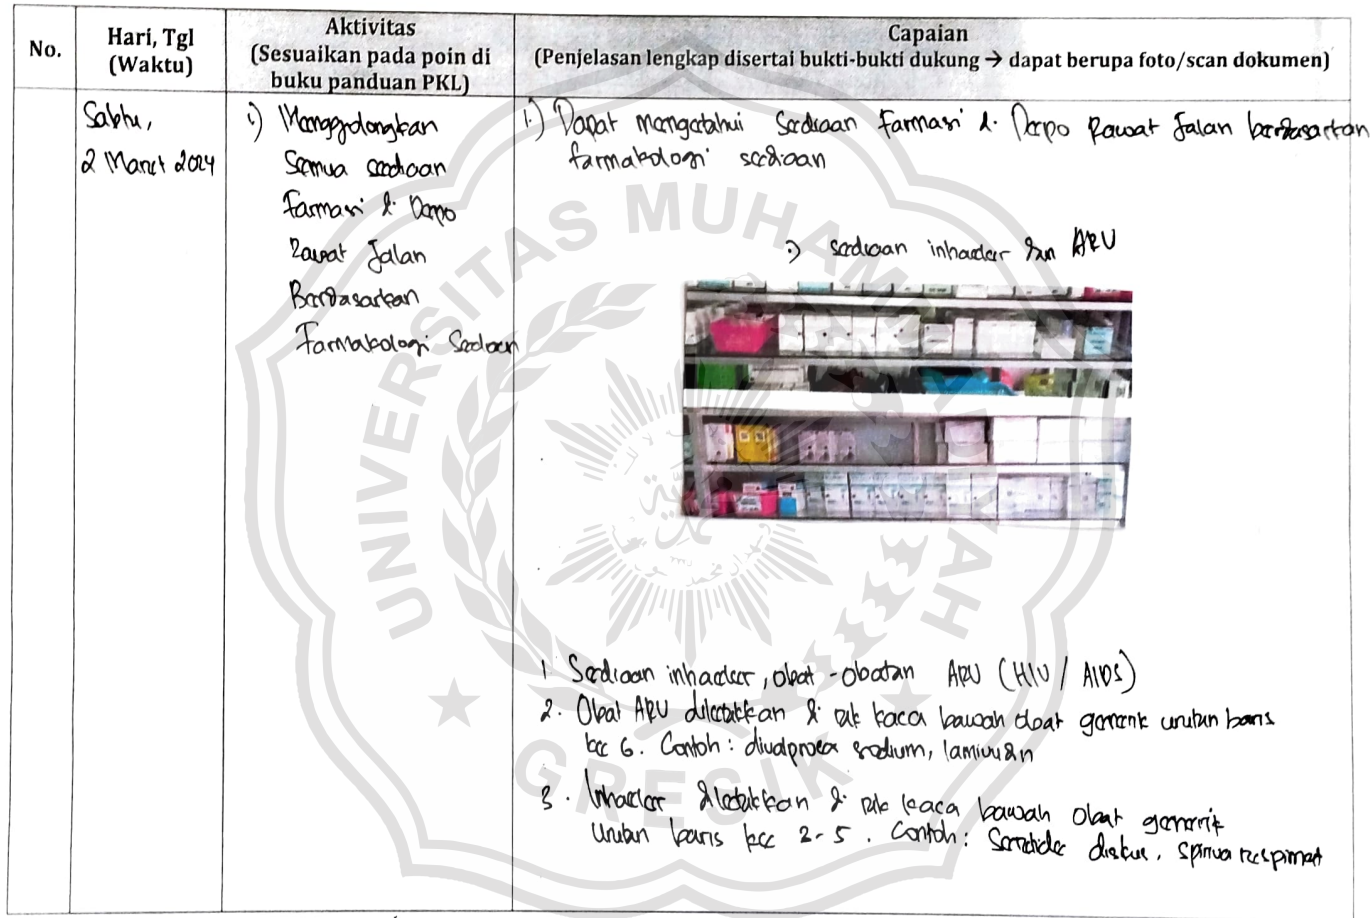 No.
Hari, Tgl
(Waktu)
Aktivitas
(Sesuaikan pada poin di
buku panduan PKL)
Capaian
(Penjelasan lengkap disertai bukti-bukti dukung → dapat berupa foto/scan dokumen)
Sabtu,
2 Maret 2024
1.) Menggolongkan
Semua sediaan
farmasi di Depo
Rawat Jalan
Berdasarkan
Farmakologi Sediaan
1.) Dapat mengetahui Sediaan farmasi di Depo Rawat Jalan berdasarkan
farmakologi sediaan
:) sediaan inhaler dan ARV
1. Sediaan inhaler, obat-obatan ARV (HIV / AIDS)
2. Obat ARV diletakkan di rak kaca bawah obat generik urutan baris
ke 6. Contoh : divalproex sodium, lamivudin
3. Inhaler diletakkan di rak kaca bawah obat generik
urutan baris ke 2-5. Contoh : Seretide diskus, spiriva respimat
UNIVERSITAS MUHAMMADIYAH
GRESIK